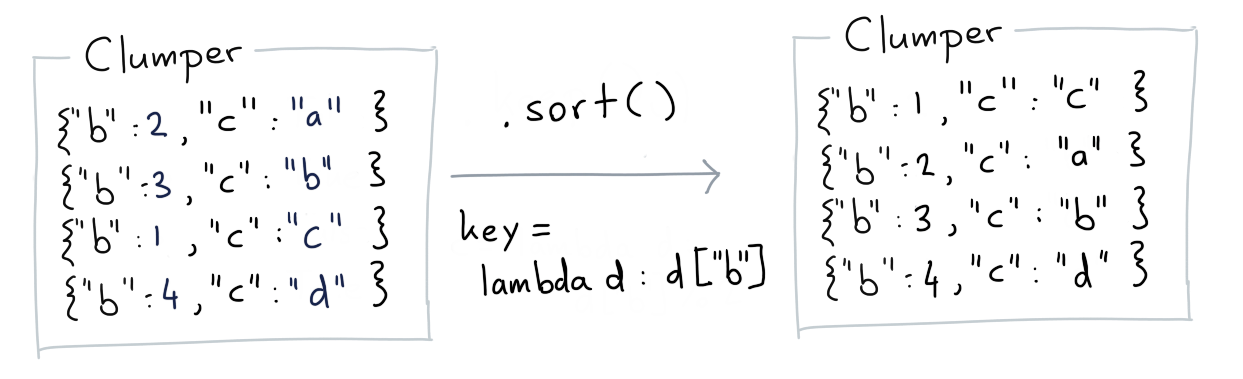 Clumper
{"b" : 2 , "c" : "a" }
{"b" : 3 , "c" : "b" }
{"b" : 1 , "c" : "c" }
{"b" : 4 , "c" : "d" }
.sort()
key =
lambda d : d ["b"]
Clumper
{"b" : 1 , "c" : "c" }
{"b" : 2 , "c" : "a" }
{"b" : 3 , "c" : "b" }
{"b" : 4 , "c" : "d" }